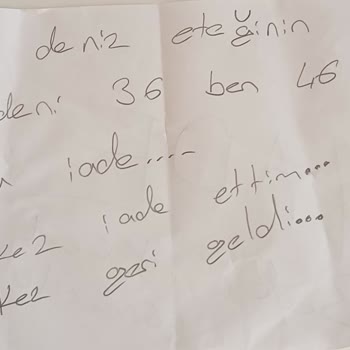 deniz eteğinin
deni 36 ben 46
iade....
kez iade ettim...
kez geri geldi...